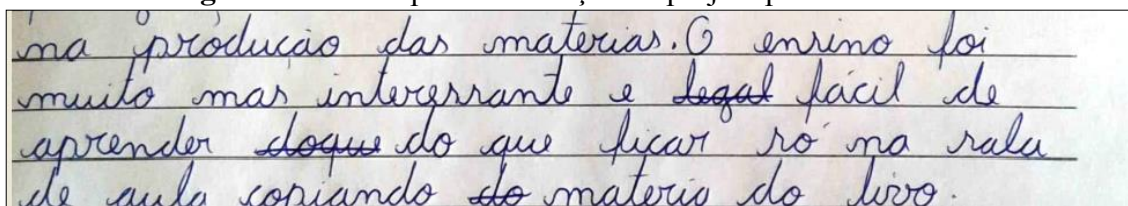 na produção das materias. O ensino foi
muito mas interessante e legal fácil de
aprender doque do que ficar só na sala
de aula copiando do materia do livro.